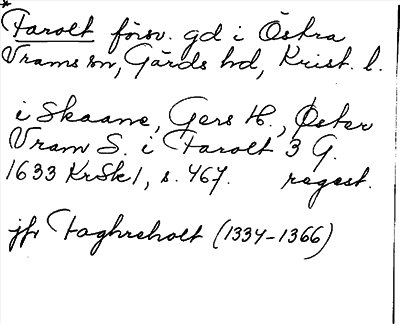 * Farolt försv. gd i Östra
Vrams sn, Gärds hd, Krist. l.
i Skaane, Gers H., Øster
Vram S. i Farolt 3 G.
1633 KrSk1, s. 467. regest.
jfr Faghreholt (1334-1366)